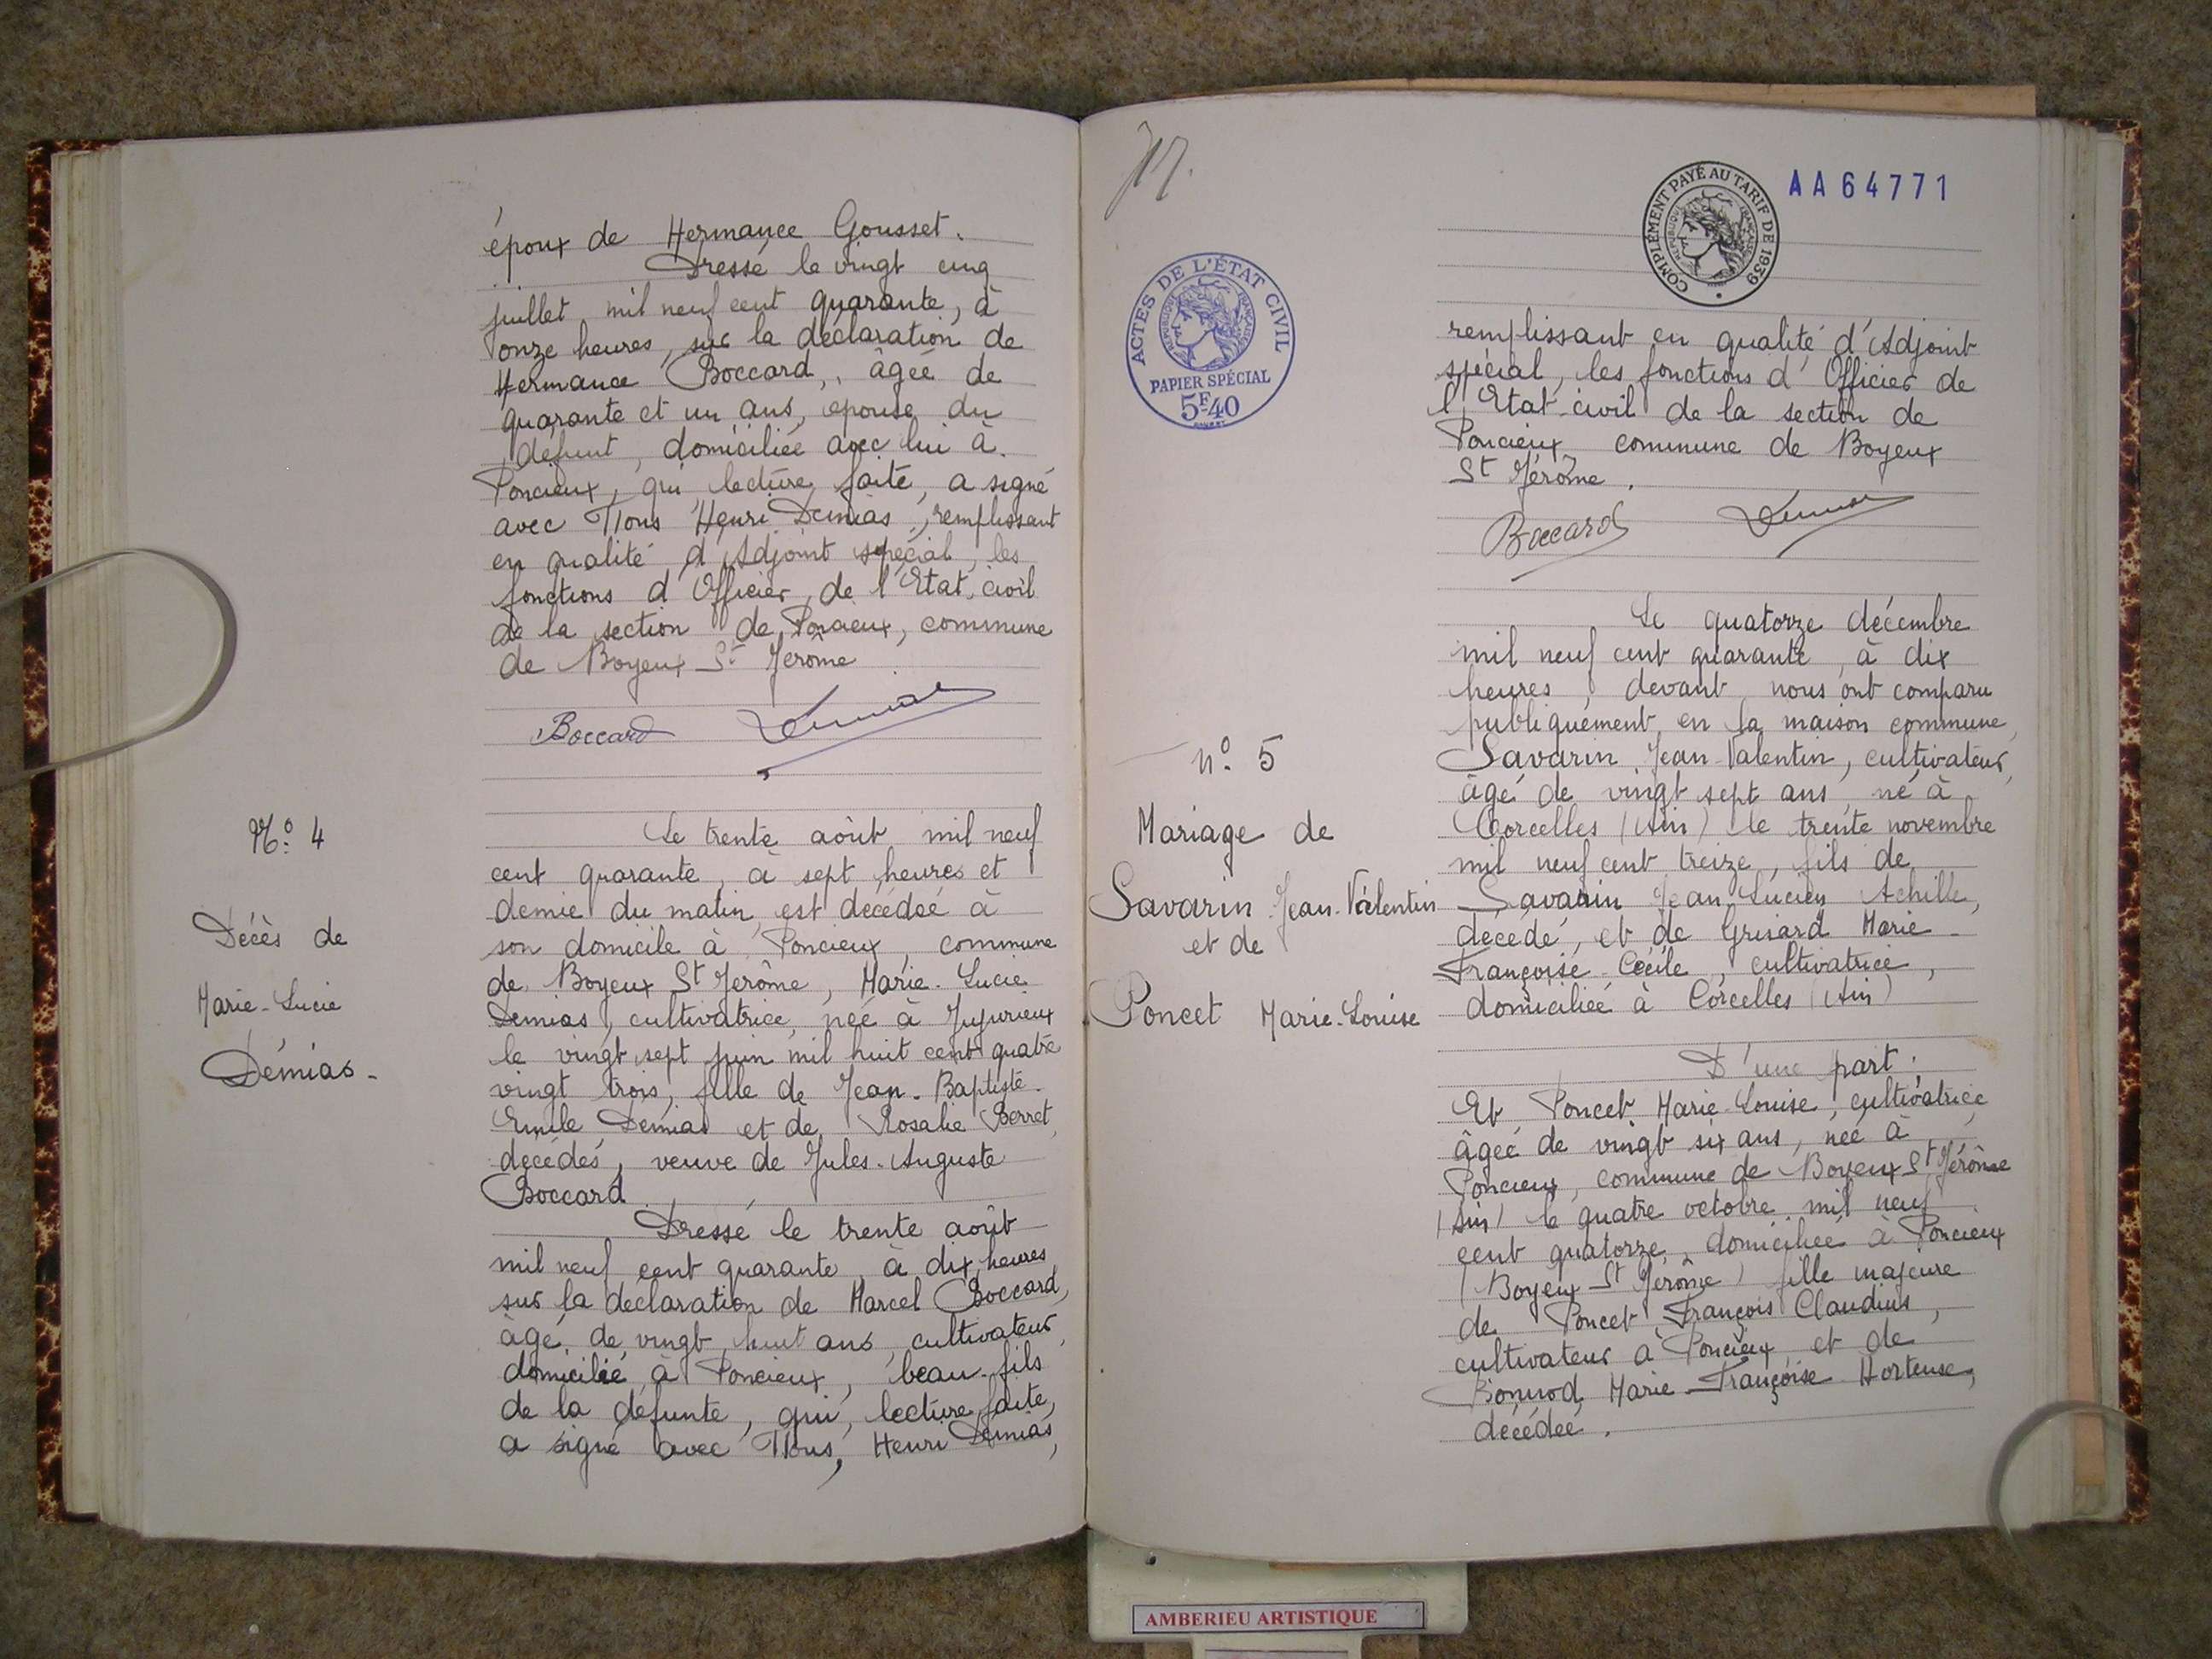 époux de Hermance Gousset.
Dressé le vingt cinq
juillet mil neuf cent quarante, à
onze heures, sur la déclaration de
Hermance Boccard, âgée de
quarante et un ans, épouse du
défunt, domiciliée avec lui à
Poncieux, qui, lecture faite, a signé
avec Nous Henri Demias, remplissant
en qualité d'Adjoint spécial, les
fonctions d'Officier de l'Etat civil
de la section de Poncieux, commune
de Boyeux St Jérôme
Boccard Demias
N° 4
Décès de
Marie-Lucie
Démias-
Le trente août mil neuf
cent quarante, à sept heures et
demie du matin, est décédée à
son domicile à Poncieux, commune
de Boyeux St Jérôme, Marie-Lucie
Demias, cultivatrice, née à Jujurieux
le vingt sept juin mil huit cent quatre
vingt trois, fille de Jean-Baptiste-
Emile Demias et de Rosalie Berret,
décédés, veuve de Jules-Auguste
Boccard
Dressé le trente août
mil neuf cent quarante, à dix heures
sur la déclaration de Marcel Boccard,
âgé de vingt huit ans, cultivateur,
domicilié à Poncieux, beau-fils
de la défunte, qui, lecture faite,
a signé avec Nous, Henri Demias,
COMPLÉMENT PAYÉ AU TARIF DE 1939
RÉPUBLIQUE FRANÇAISE
AA64771
ACTES DE L'ÉTAT CIVIL
RÉPUBLIQUE FRANÇAISE
PAPIER SPÉCIAL
5F40
remplissant en qualité d'Adjoint
spécial, les fonctions d'Officier de
l'Etat-civil de la section de
Poncieux commune de Boyeux
St Jérôme.
Boccard Demias
N° 5
Mariage de
Savarin Jean-Valentin
et de
Poncet Marie-Louise
Le quatorze décembre
mil neuf cent quarante, à dix
heures, devant nous ont comparu
publiquement en la maison commune,
Savarin Jean-Valentin, cultivateur,
âgé de vingt sept ans, né à
Corcelles (Ain) le trente novembre
mil neuf cent treize, fils de
Savarin Jean Lucien Achille,
décédé, et de Grisard Marie-
Françoise-Cécile, cultivatrice,
domiciliée à Corcelles (Ain)
D'une part;
Et Poncet Marie-Louise, cultivatrice,
âgée de vingt six ans, née à
Poncieux, commune de Boyeux St Jérôme
(Ain) le quatre octobre mil neuf
cent quatorze, domiciliée à Poncieux
(Boyeux-St Jérôme) fille majeure
de Poncet François Claudius,
cultivateur à Poncieux et de
Bonnod Marie-Françoise-Hortense,
décédée.
AMBERIEU ARTISTIQUE